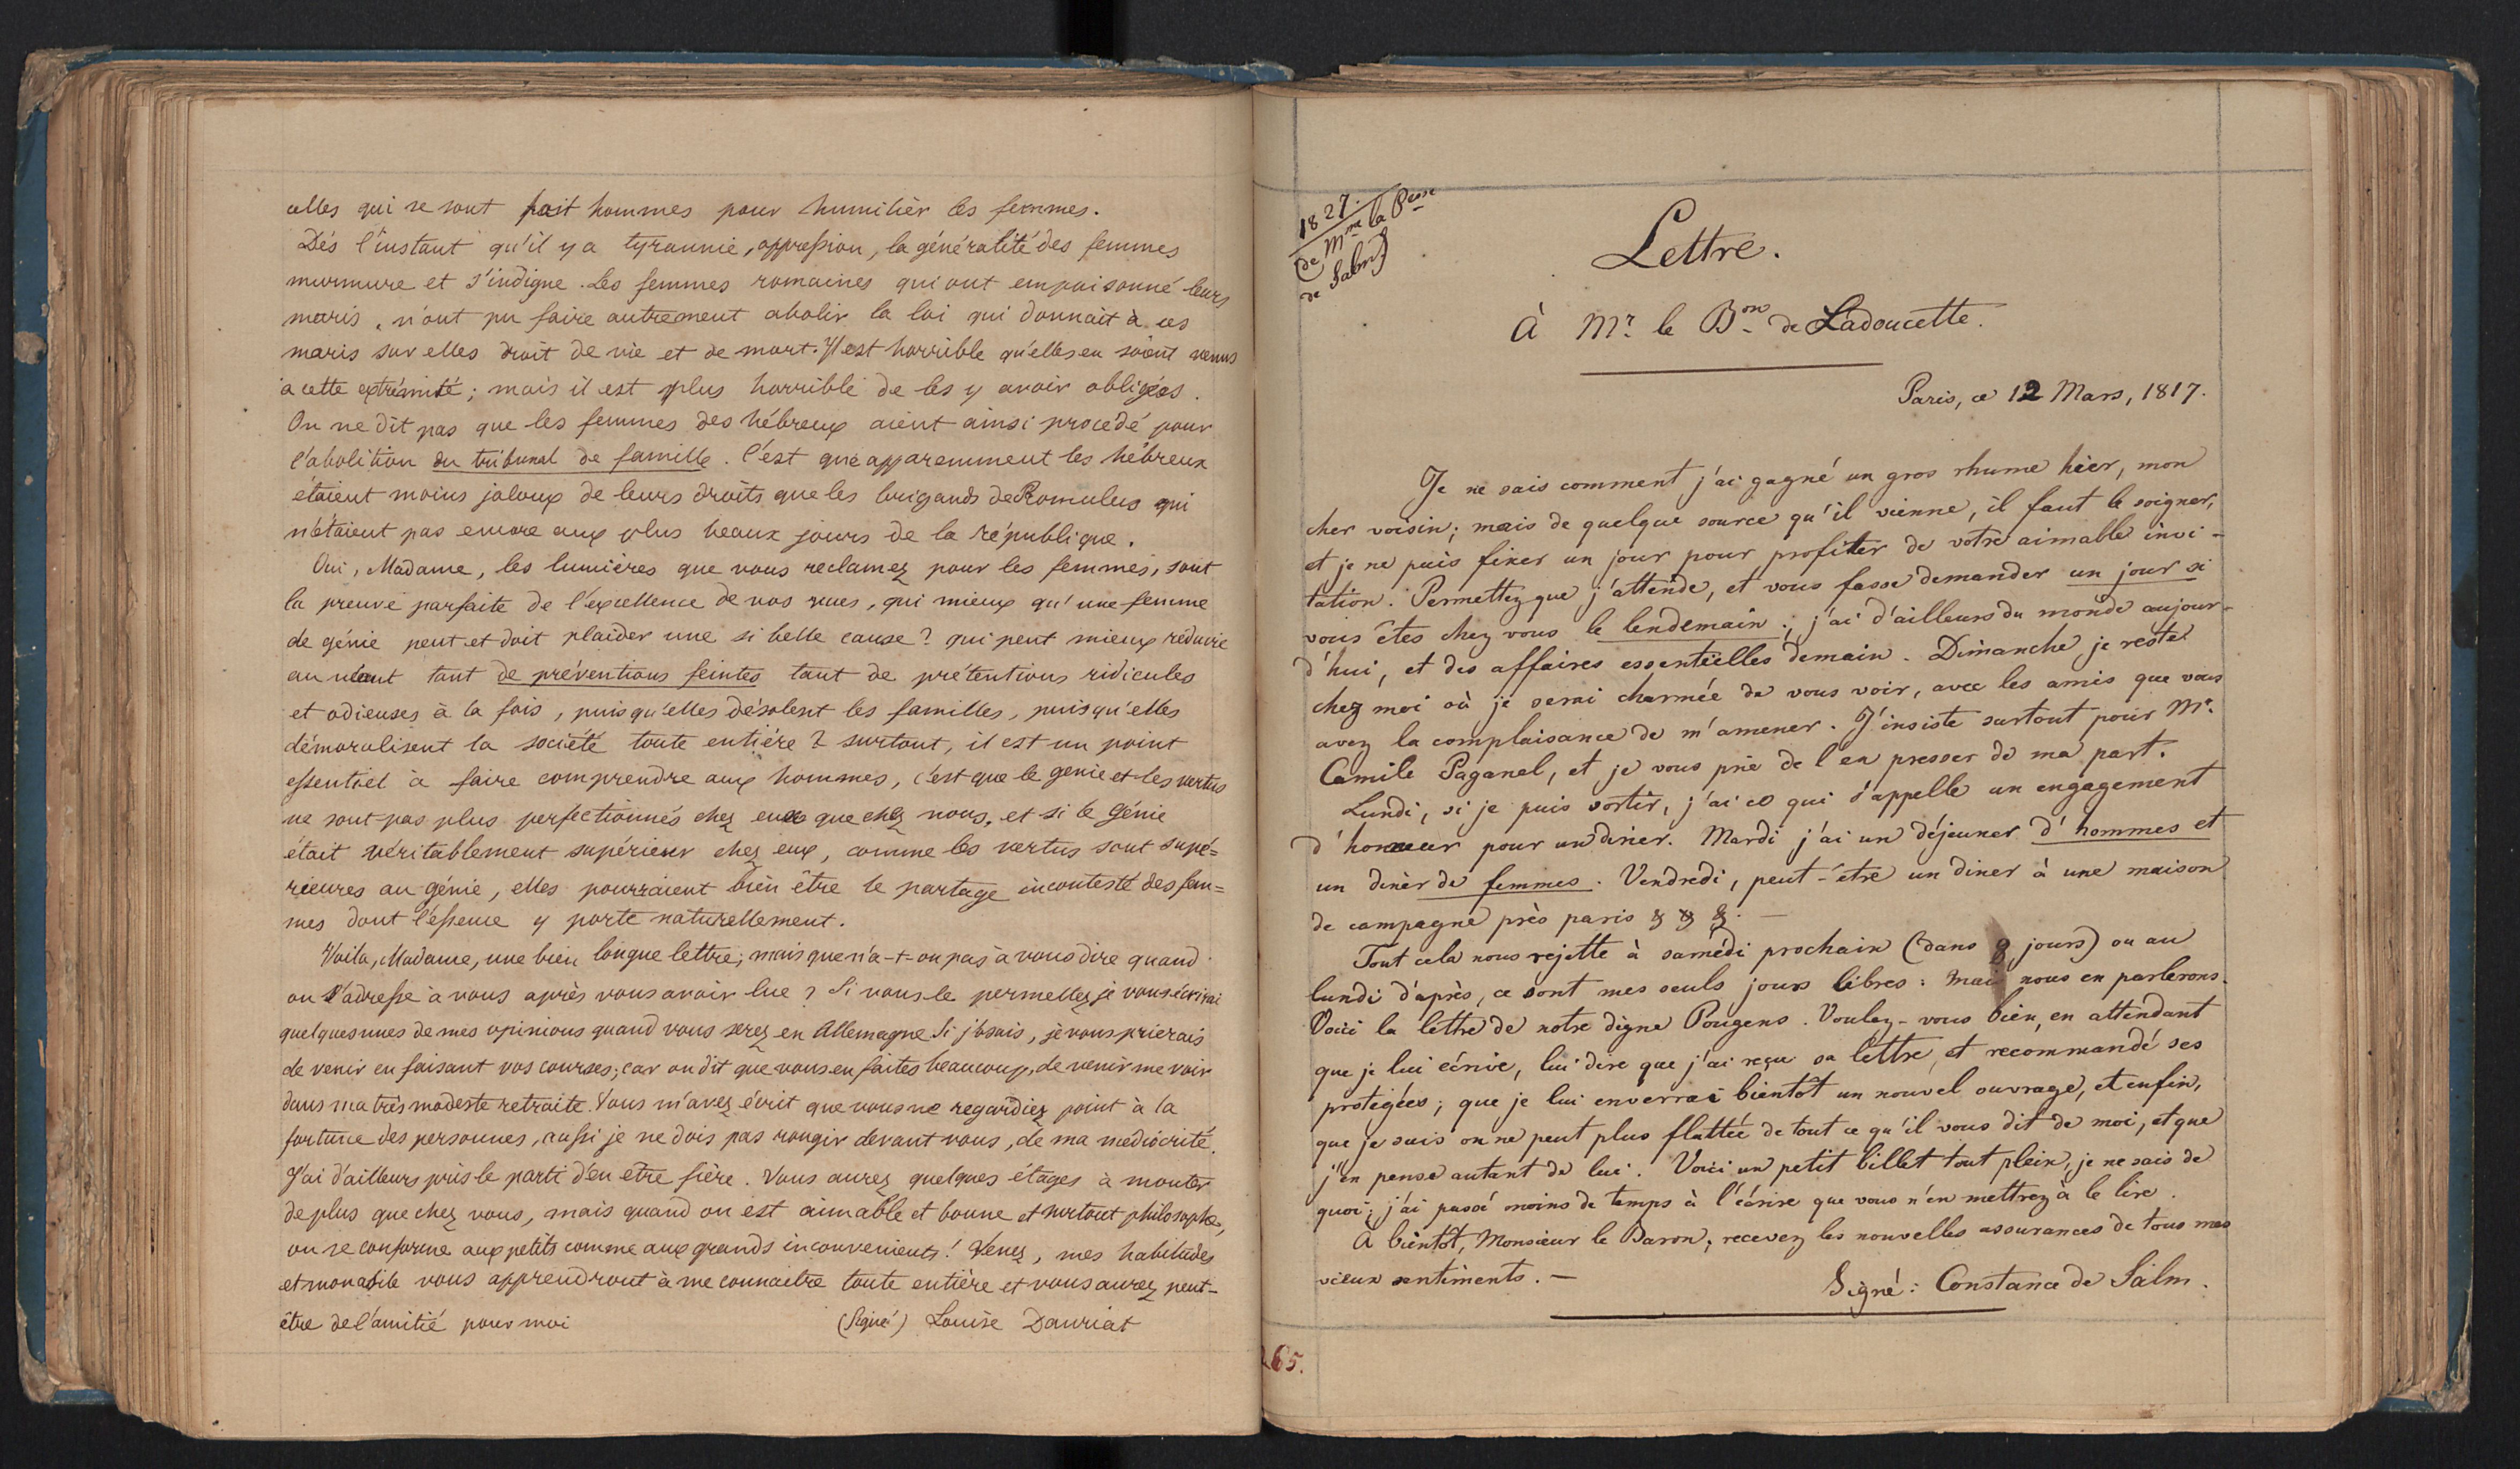 celles qui se sont fait hommes pour humilier les femmes.
Dès l'instant qu'il y a tyrannie, oppression, la généralité des femmes
murmure et s'indigne. Les femmes romaines qui ont empoisonné leurs
maris, n'ont pu faire autrement abolir la loi qui donnait à ces
maris sur elles droit de vie et de mort. Il est horrible qu'elles en soient venus
à cette extrémité; mais il est plus horrible de les y avoir obligées.
On ne dit pas que les femmes des hébreux aient ainsi procédé pour
l'abolition du tribunal de famille. C'est que apparemment les hébreux
étaient moins jaloux de leurs droits que les brigands de Romulus qui
n'étaient pas encore aux plus beaux jours de la république.
Oui, Madame, les lumières que vous reclamez pour les femmes, sont
la preuve parfaite de l'excellence de vos vues, qui mieux qu'une femme
de génie peut et doit plaider une si belle cause? qui peut mieux réduire
au néant tant de préventions feintes tant de prétentions ridicules
et odieuses à la fois, puisqu'elles désolent les familles, puisqu'elles
démoralisent la société toute entière? surtout, il est un point
essentiel à faire comprendre aux hommes, c'est que le genie et les vertus
ne sont pas plus perfectionnés chez eux que chez nous, et si le génie
était véritablement supérieur chez eux, comme les vertus sont supé=
rieures au génie, elles pourraient bien être le partage incontesté des fem=
mes dont l'essence y porte naturellement.
Voila, Madame, une bien longue lettre; mais que n'a-t-on pas à vous dire quand
on s'adresse à vous après vous avoir lue? Si vous le permettez je vous écrirai
quelques unes de mes opinions quand vous serez en Allemagne. Si j'osais, je vous prierais
de venir en faisant vos courses; car on dit que vous en faites beaucoup, de venir me voir
dans ma très modeste retraite. Vous m'avez écrit que vous ne regardiez point à la
fortune des personnes, aussi je ne dois pas rougir devant vous, de ma médiocrité.
J'ai d'ailleurs pris le parti d'en etre fière. Vous aurez quelques étages à monter
de plus que chez vous, mais quand on est aimable et bonne et surtout philosophe,
on se conforme aux petits comme aux grands inconvenients! Venez, mes habitudes
et mon asile vous apprendront à me connaitre toute entière et vous aurez peut-
être de l'amitié pour moi
(Signé) Louise Dauriat
1827.
(de Mme la Pesse
de Salm)
Lettre.
À Mr. le Bon. de Ladoucette.
Paris, ce 12 Mars, 1817.
Je ne sais comment j'ai gagné un gros rhume hier, mon
cher voisin; mais de quelque source qu'il vienne, il faut le soigner,
et je ne puis fixer un jour pour profiter de votre aimable invi-
tation. Permettez que j'attende, et vous fasse demander un jour si
vous êtes chez vous le lendemain; j'ai d'ailleurs du monde aujour-
d'hui, et des affaires essentielles demain. Dimanche je reste
chez moi où je serai charmée de vous voir, avec les amis que vous
avez la complaisance de m'amener. J'insiste surtout pour Mr.
Camile Paganel, et je vous prie de l'en presser de ma part.
Lundi, si je puis sortir, j'ai ce qui s'appelle un engagement
d'honneur pour un diner. Mardi j'ai un déjeuner d'hommes et
un diner de femmes. Vendredi, peut-être un diner à une maison
de campagne près paris & & &. —
Tout cela nous rejette à samedi prochain (dans 8 jours) ou au
lundi d'après, ce sont mes seuls jours libres: mais nous en parlerons.
Voici la lettre de notre digne Pougens. Voulez-vous bien, en attendant
que je lui écrive, lui dire que j'ai reçu sa lettre et recommandé ses
protégées; que je lui enverrai bientôt un nouvel ouvrage, et enfin,
que je suis on ne peut plus flattée de tout ce qu'il vous dit de moi, et que
j'en pense autant de lui. Voici un petit billet tout plein, je ne sais de
quoi; j'ai passé moins de temps à l'écrire que vous n'en mettrez à le lire.
À bientôt, Monsieur le Baron; recevez les nouvelles assurances de tous mes
vieux sentiments. —
Signé: Constance de Salm.
265.